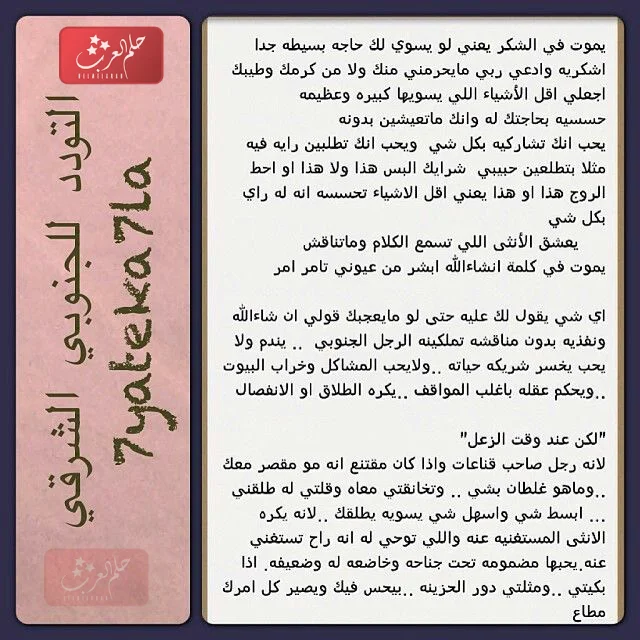 حلم العرب
التودد للجنوبي الشرقي
7yateka7La
حلم العرب
يموت في الشكر يعني لو يسوي لك حاجه بسيطه جدا
اشكريه وادعي ربي مايحرمني منك ولا من كرمك وطيبك
اجعلي اقل الأشياء اللي يسويها كبيره وعظيمه
حسسيه بحاجتك له وانك ماتعيشين بدونه
يحب انك تشاركيه بكل شي ويحب انك تطلبين رايه فيه
مثلا بتطلعين حبيبي شرايك البس هذا ولا هذا او احط
الروج هذا او هذا يعني اقل الاشياء تحسسه انه له راي
بكل شي
يعشق الأنثى اللي تسمع الكلام وماتناقش
يموت في كلمة انشاءالله ابشر من عيوني تامر امر
اي شي يقول لك عليه حتى لو مايعجبك قولي ان شاءالله
ونفذيه بدون مناقشه تملكينه الرجل الجنوبي .. يندم ولا
يحب يخسر شريكه حياته ..ولايحب المشاكل وخراب البيوت
..ويحكم عقله باغلب المواقف ..يكره الطلاق او الانفصال
"لكن عند وقت الزعل"
لانه رجل صاحب قناعات واذا كان مقتنع انه مو مقصر معك
..وماهو غلطان بشي .. وتخانقتي معاه وقلتي له طلقني
... ابسط شي واسهل شي يسويه يطلقك ..لانه يكره
الانثى المستغنيه عنه واللي توحي له انه راح تستغني
عنه.يحبها مضمومه تحت جناحه وخاضعه له وضعيفه. اذا
بكيتي ..ومثلتي دور الحزينه ..بيحس فيك ويصير كل امرك
مطاع